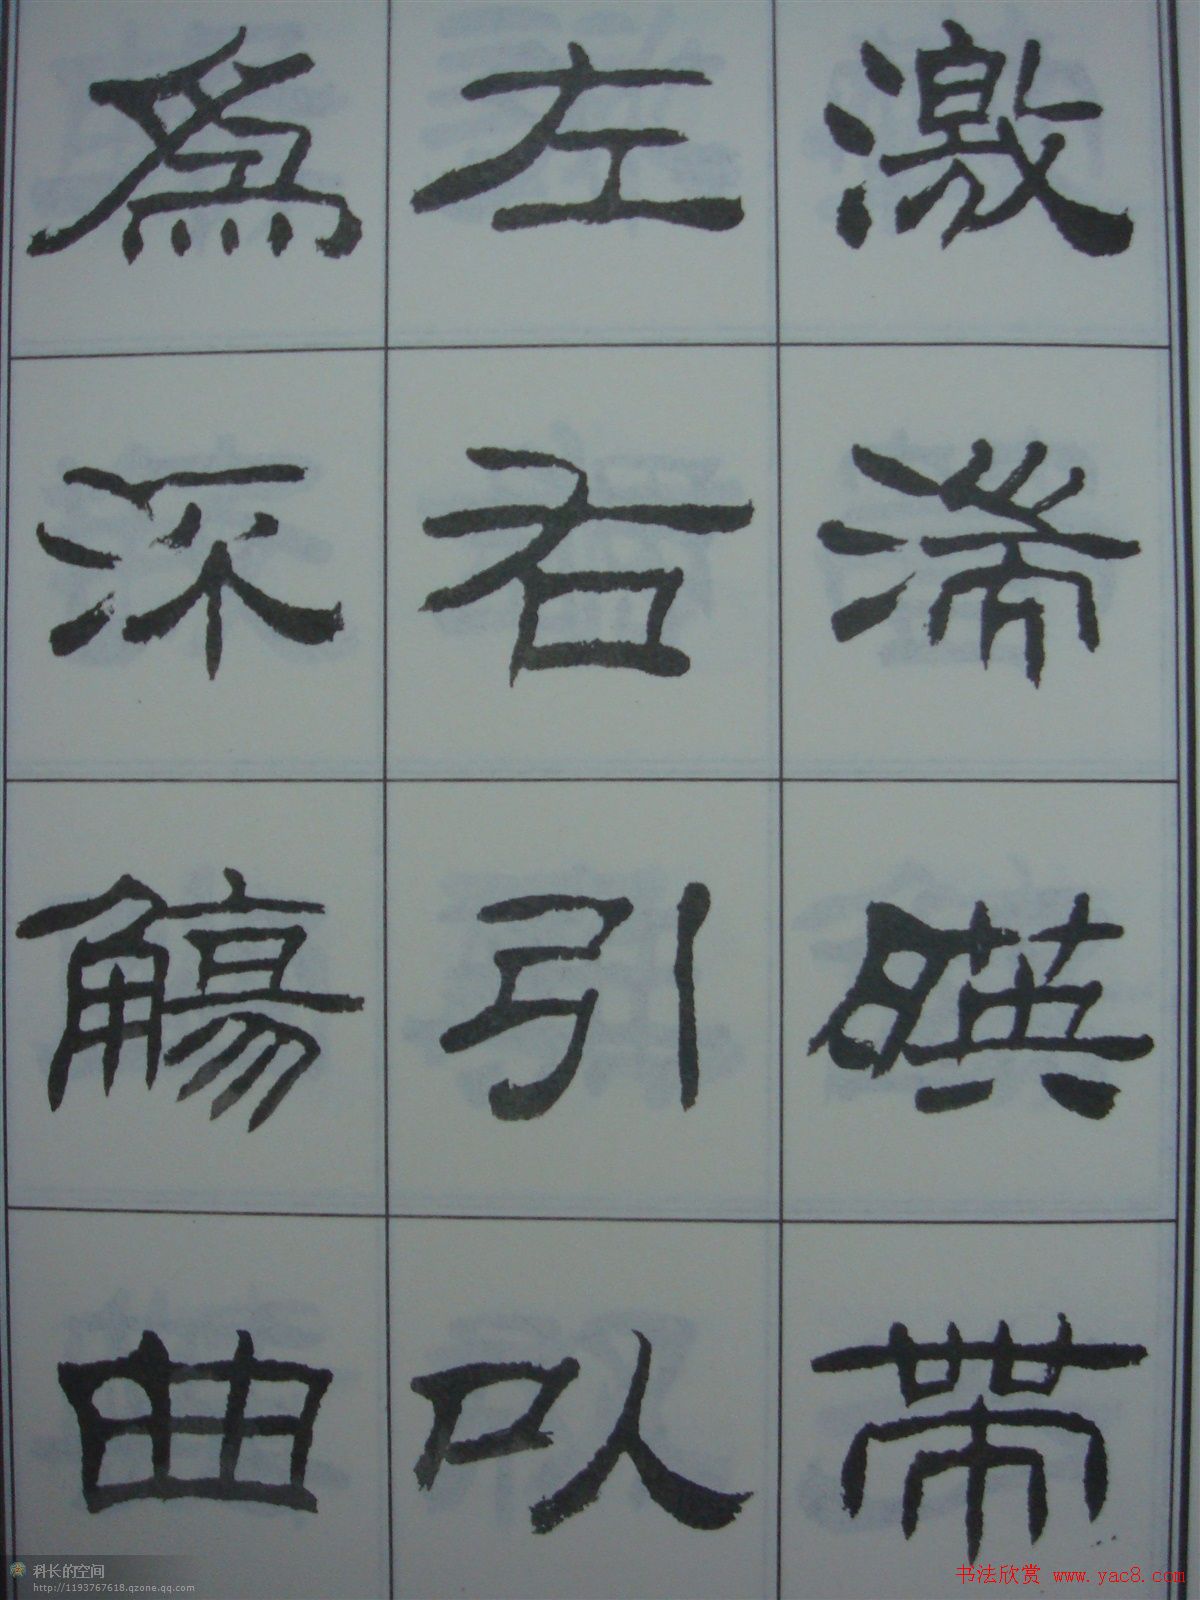 激湍暎带
左右引以
為流觴曲
科长的空间
http://1193767618.qzone.qq.com
书法欣赏 www.yac8.com